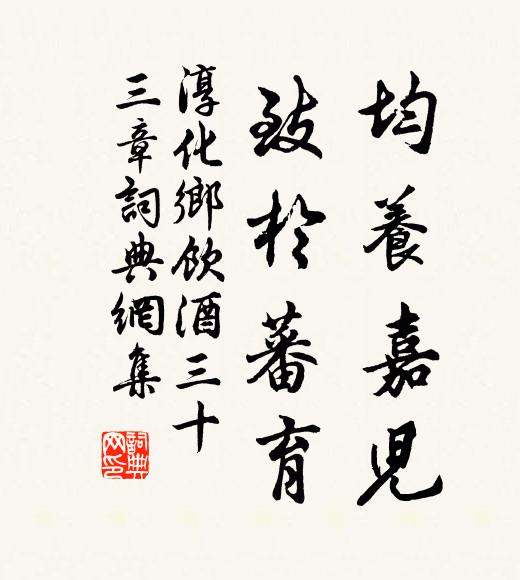 均養嘉児
致於蕃育
淳化鄉飲酒三十
三章詞典網集
詞典网印